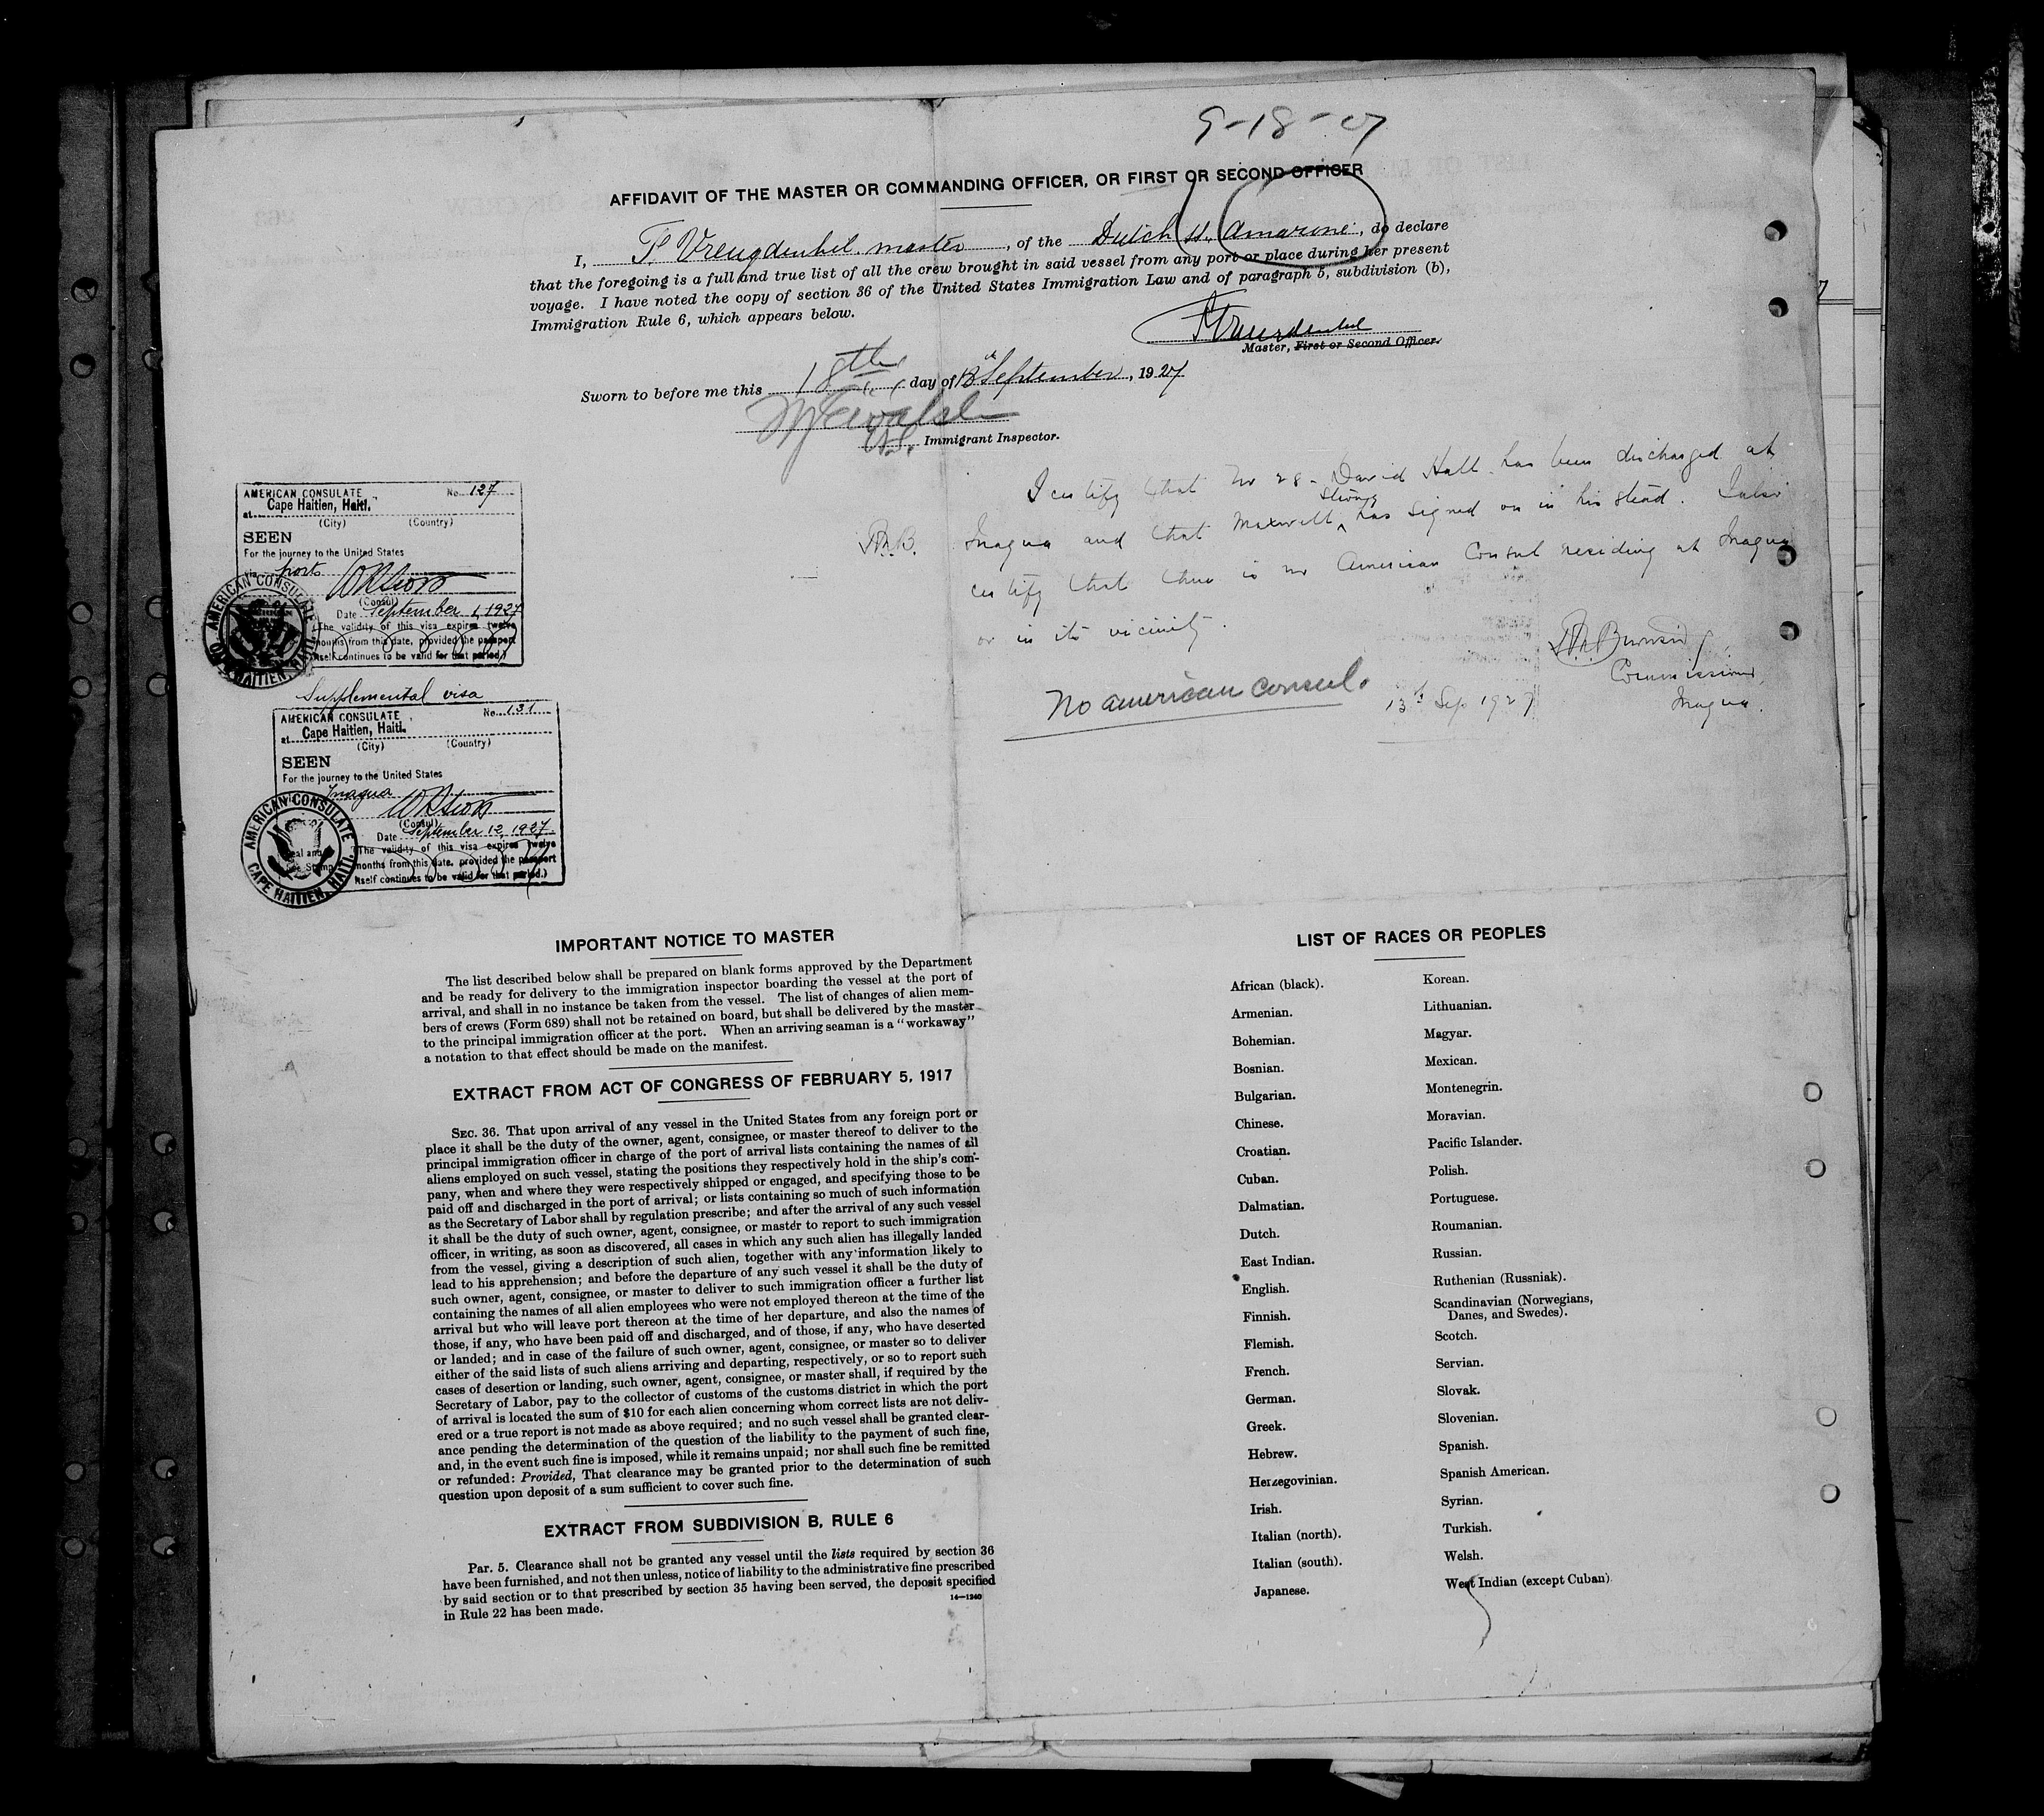 9-18-27
AFFIDAVIT OF THE MASTER OR COMMANDING OFFICER, OR FIRST OR SECOND OFFICER
I, P. Vreugdenhil master, of the Dutch ss. Amarine, do declare
that the foregoing is a full and true list of all the crew brought in said vessel from any port or place during her present
voyage. I have noted the copy of section 36 of the United States Immigration Law and of paragraph 5, subdivision (b),
Immigration Rule 6, which appears below.
Vreugdenhil
Master, First or Second Officer.
Sworn to before me this 18th day of September, 1927
Immigrant Inspector.
I certify that No 28 - David Hall has been discharged at
Inagua and that Maxwell Strong has signed on in his stead. I also
certify that there is no American Consul residing at Inagua
or in its vicinity.
Commissioner,
Inagua.
13th Sep 1927
No american consul.
AMERICAN CONSULATE No. 127
at Cape Haitien, Haiti.
(City) (Country)
SEEN
For the journey to the United States
ports
(Consul)
Date September 1, 1927
(The validity of this visa expires twelve
months from this date, provided the passport
itself continues to be valid for that period.)
AMERICAN CONSULATE
CAPE HAITIEN, HAITI.
Supplemental visa
AMERICAN CONSULATE No. 131
at Cape Haitien, Haiti.
(City) (Country)
SEEN
For the journey to the United States
Inagua
(Consul)
Date September 12, 1927
(The validity of this visa expires twelve
months from this date, provided the passport
itself continues to be valid for that period.)
AMERICAN CONSULATE
CAPE HAITIEN, HAITI.
IMPORTANT NOTICE TO MASTER
The list described below shall be prepared on blank forms approved by the Department
and be ready for delivery to the immigration inspector boarding the vessel at the port of
arrival, and shall in no instance be taken from the vessel. The list of changes of alien mem-
bers of crews (Form 689) shall not be retained on board, but shall be delivered by the master
to the principal immigration officer at the port. When an arriving seaman is a "workaway"
a notation to that effect should be made on the manifest.
EXTRACT FROM ACT OF CONGRESS OF FEBRUARY 5, 1917
SEC. 36. That upon arrival of any vessel in the United States from any foreign port or
place it shall be the duty of the owner, agent, consignee, or master thereof to deliver to the
principal immigration officer in charge of the port of arrival lists containing the names of all
aliens employed on such vessel, stating the positions they respectively hold in the ship's com-
pany, when and where they were respectively shipped or engaged, and specifying those to be
paid off and discharged in the port of arrival; or lists containing so much of such information
as the Secretary of Labor shall by regulation prescribe; and after the arrival of any such vessel
it shall be the duty of such owner, agent, consignee, or master to report to such immigration
officer, in writing, as soon as discovered, all cases in which any such alien has illegally landed
from the vessel, giving a description of such alien, together with any information likely to
lead to his apprehension; and before the departure of any such vessel it shall be the duty of
such owner, agent, consignee, or master to deliver to such immigration officer a further list
containing the names of all alien employees who were not employed thereon at the time of the
arrival but who will leave port thereon at the time of her departure, and also the names of
those, if any, who have been paid off and discharged, and of those, if any, who have deserted
or landed; and in case of the failure of such owner, agent, consignee, or master so to deliver
either of the said lists of such aliens arriving and departing, respectively, or so to report such
cases of desertion or landing, such owner, agent, consignee, or master shall, if required by the
Secretary of Labor, pay to the collector of customs of the customs district in which the port
of arrival is located the sum of $10 for each alien concerning whom correct lists are not deliv-
ered or a true report is not made as above required; and no such vessel shall be granted clear-
ance pending the determination of the question of the liability to the payment of such fine,
and, in the event such fine is imposed, while it remains unpaid; nor shall such fine be remitted
or refunded: Provided, That clearance may be granted prior to the determination of such
question upon deposit of a sum sufficient to cover such fine.
EXTRACT FROM SUBDIVISION B, RULE 6
Par. 5. Clearance shall not be granted any vessel until the lists required by section 36
have been furnished, and not then unless, notice of liability to the administrative fine prescribed
by said section or to that prescribed by section 35 having been served, the deposit specified
in Rule 22 has been made.
14—1240
LIST OF RACES OR PEOPLES
African (black).
Armenian.
Bohemian.
Bosnian.
Bulgarian.
Chinese.
Croatian.
Cuban.
Dalmatian.
Dutch.
East Indian.
English.
Finnish.
Flemish.
French.
German.
Greek.
Hebrew.
Herzegovinian.
Irish.
Italian (north).
Italian (south).
Japanese.
Korean.
Lithuanian.
Magyar.
Mexican.
Montenegrin.
Moravian.
Pacific Islander.
Polish.
Portuguese.
Roumanian.
Russian.
Ruthenian (Russniak).
Scandinavian (Norwegians,
Danes, and Swedes).
Scotch.
Servian.
Slovak.
Slovenian.
Spanish.
Spanish American.
Syrian.
Turkish.
Welsh.
West Indian (except Cuban)